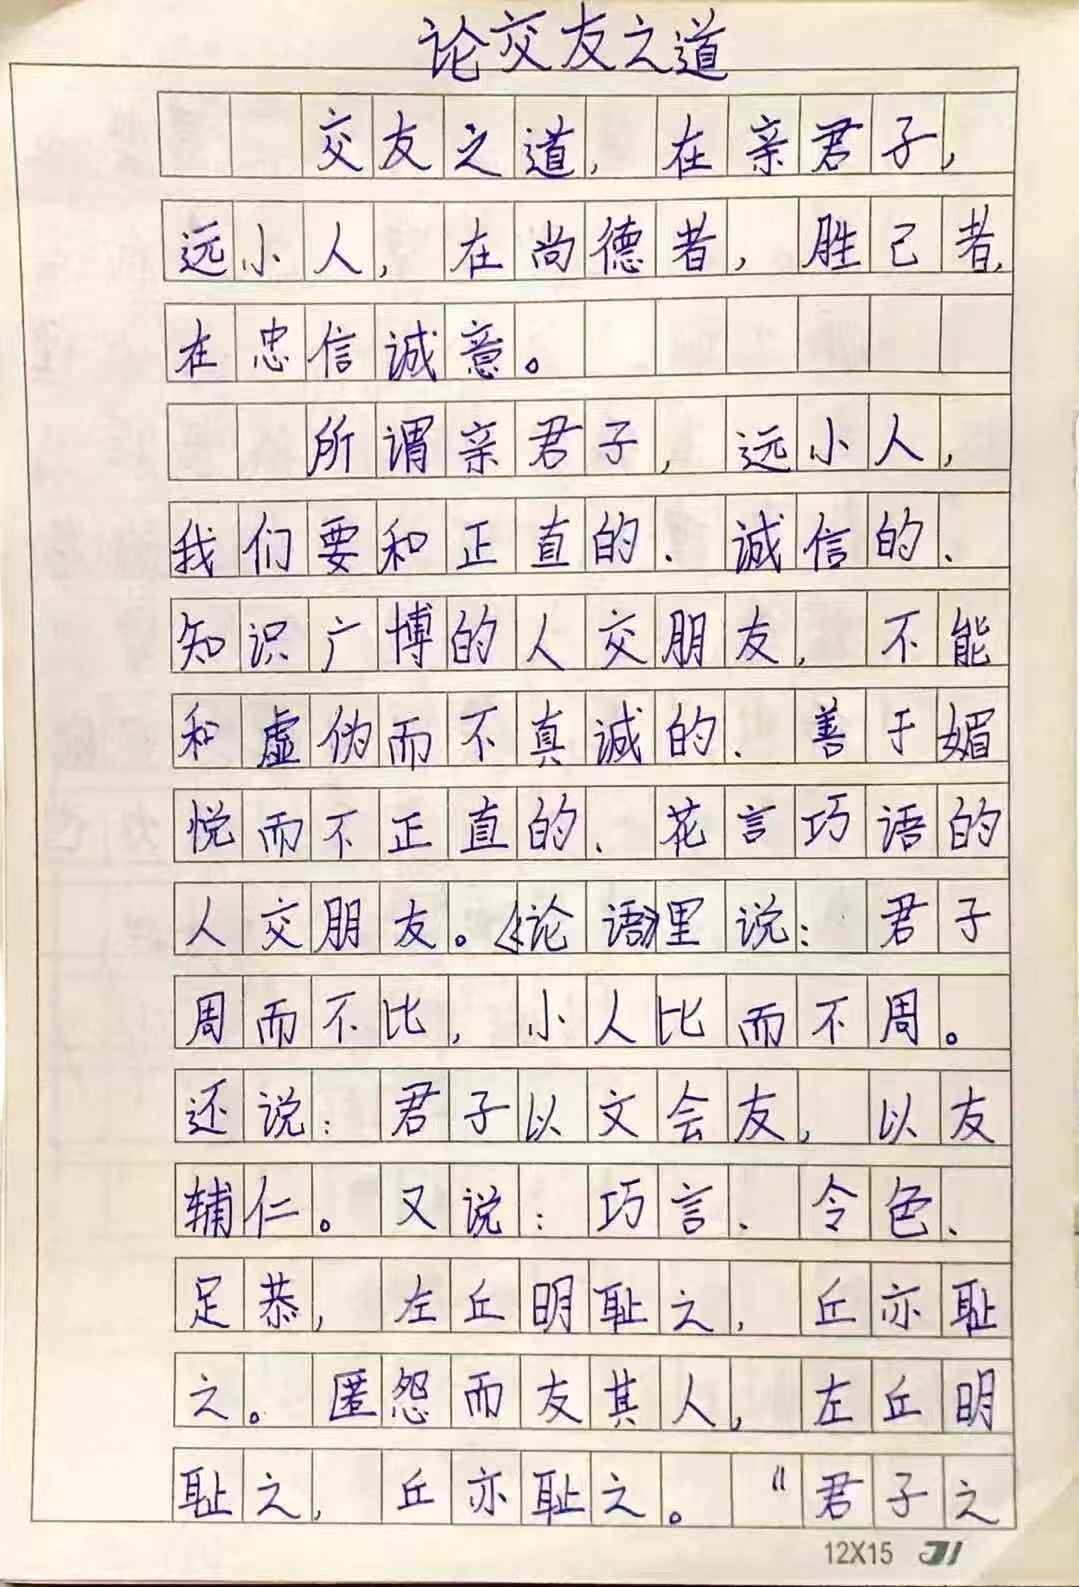 论交友之道
交友之道，在亲君子，
远小人，在尚德者，胜己者，
在忠信诚意。
所谓亲君子，远小人，
我们要和正直的、诚信的、
知识广博的人交朋友，不能
和虚伪而不真诚的、善于媚
悦而不正直的、花言巧语的
人交朋友。《论语》里说：君子
周而不比，小人比而不周。
还说：君子以文会友，以友
辅仁。又说：巧言、令色、
足恭，左丘明耻之，丘亦耻
之。匿怨而友其人，左丘明
耻之，丘亦耻之。“君子之
12X15